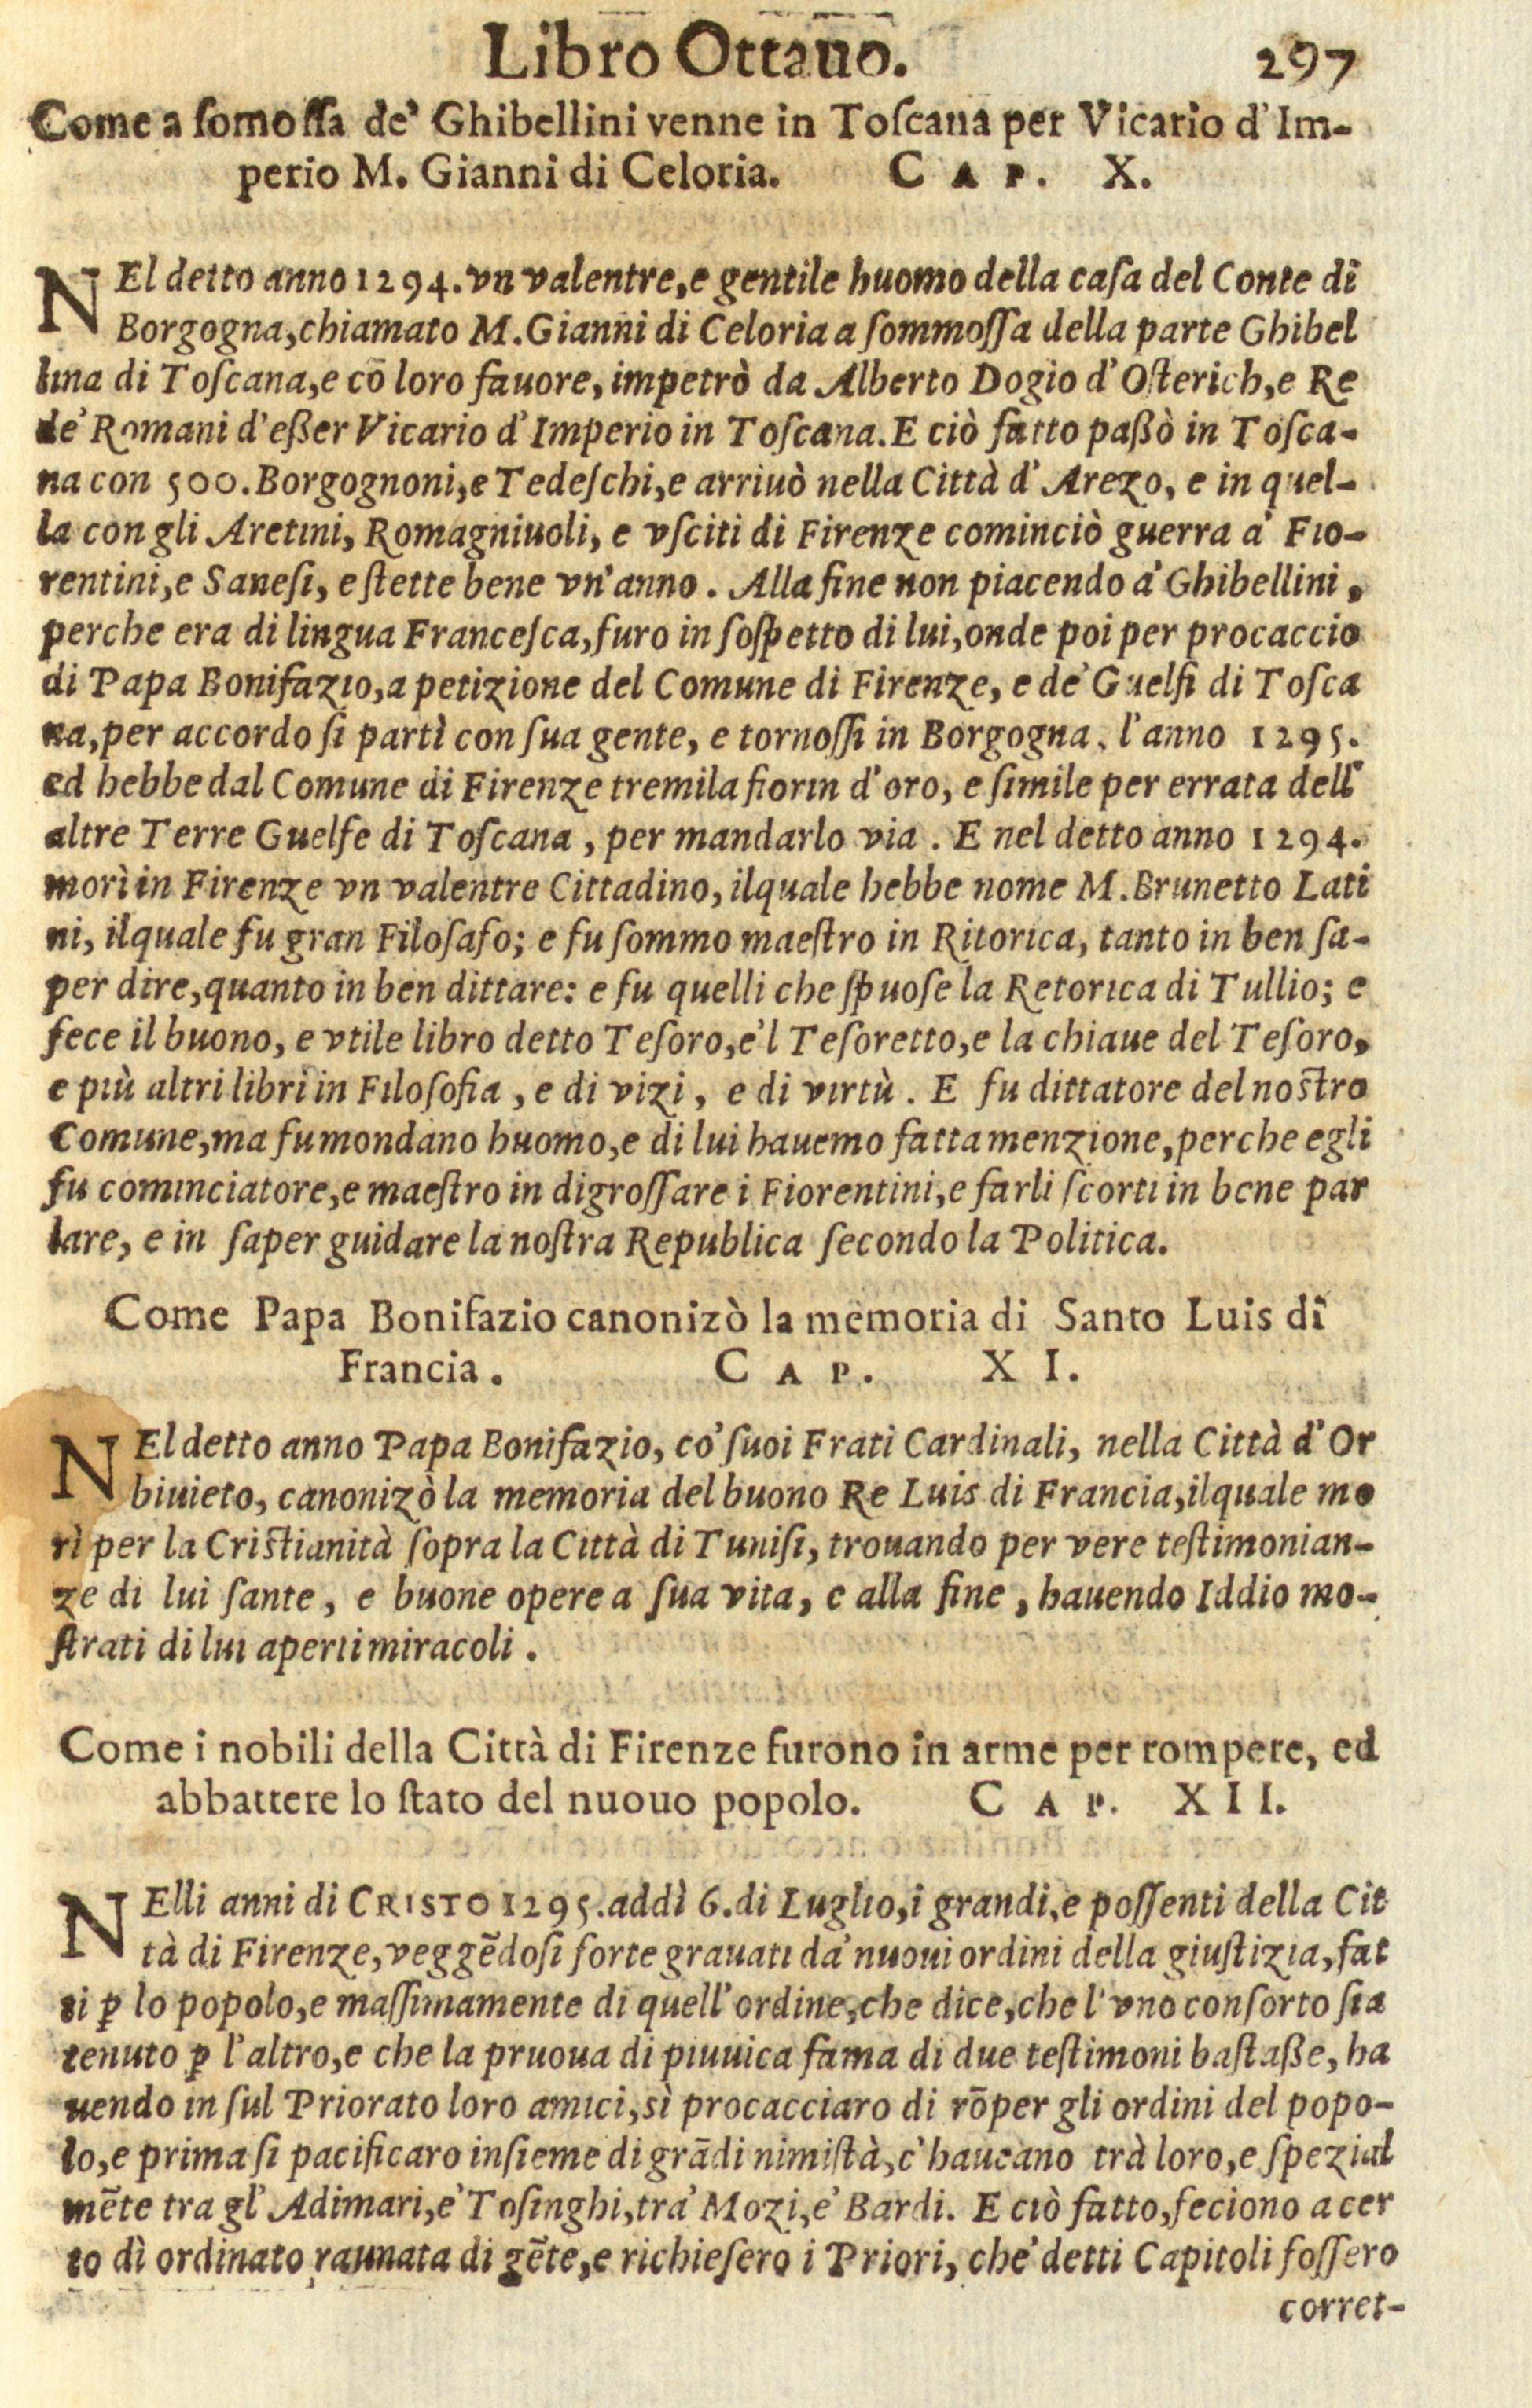 Libro Ottauo. 297
Come a ſomoſſa de' Ghibellini venne in Toſcana per Vicario d'Im-
perio M. Gianni di Celoria. CAP. X.
NEl detto anno 1294. vn valentre, e gentile huomo della caſa del Conte di
Borgogna, chiamato M. Gianni di Celoria a ſommoſſa della parte Ghibel
lina di Toſcana, e cō loro fauore, impetrò da Alberto Dogio d'Oſterich, e Re
de' Romani d'eßer Vicario d'Imperio in Toſcana. E ciò fatto paßò in Toſca-
na con 500. Borgognoni, e Tedeſchi, e arriuò nella Città d'Arezo, e in quel-
la con gli Aretini, Romagniuoli, e vſciti di Firenze cominciò guerra a' Fio-
rentini, e Saneſi, e ſtette bene vn'anno. Alla fine non piacendo a' Ghibellini,
perche era di lingua Franceſca, furo in ſoſpetto di lui, onde poi per procaccio
di Papa Bonifazio, a petizione del Comune di Firenze, e de' Guelfi di Toſca
na, per accordo ſi partì con ſua gente, e tornoſſi in Borgogna, l'anno 1295.
ed hebbe dal Comune di Firenze tremila fiorin d'oro, e ſimile per errata dell'
altre Terre Guelfe di Toſcana, per mandarlo via. E nel detto anno 1294.
morì in Firenze vn valentre Cittadino, ilquale hebbe nome M. Brunetto Lati
ni, ilquale fu gran Filoſafo; e fu ſommo maeſtro in Ritorica, tanto in ben ſa-
per dire, quanto in ben dittare: e fu quelli che ſpuoſe la Retorica di Tullio; e
fece il buono, e vtile libro detto Teſoro, e'l Teſoretto, e la chiaue del Teſoro,
e più altri libri in Filoſofia, e di vizi, e di virtù. E fu dittatore del noſtro
Comune, ma fu mondano huomo, e di lui hauemo fatta menzione, perche egli
fu cominciatore, e maeſtro in digroſſare i Fiorentini, e farli ſcorti in bene par
lare, e in ſaper guidare la noſtra Republica ſecondo la Politica.
Come Papa Bonifazio canonizò la memoria di Santo Luis di
Francia. CAP. XI.
NEl detto anno Papa Bonifazio, co' ſuoi Frati Cardinali, nella Città d'Or
biuieto, canonizò la memoria del buono Re Luis di Francia, ilquale mo
rì per la Criſtianità ſopra la Città di Tuniſi, trouando per vere teſtimonian-
ze di lui ſante, e buone opere a ſua vita, e alla fine, hauendo Iddio mo-
ſtrati di lui aperti miracoli.
Come i nobili della Città di Firenze furono in arme per rompere, ed
abbattere lo ſtato del nuouo popolo. CAP. XII.
NElli anni di CRISTO 1295. addì 6. di Luglio, i grandi, e poſſenti della Cit
tà di Firenze, veggēdoſi forte grauati da' nuoui ordini della giuſtizia, fat
ti ꝑ lo popolo, e maſſimamente di quell'ordine, che dice, che l'vno conſorto ſia
tenuto ꝑ l'altro, e che la pruoua di piuuica fama di due teſtimoni baſtaße, ha
uendo in ſul Priorato loro amici, sì procacciaro di rōper gli ordini del popo-
lo, e prima ſi pacificaro inſieme di grādi nimiſtà, c'haueano trà loro, e ſpezial
mēte tra gl'Adimari, e' Toſinghi, tra' Mozi, e' Bardi. E ciò fatto, feciono a cer
to dì ordinato raunata di gēte, e richieſero i Priori, che' detti Capitoli foſſero
corret-